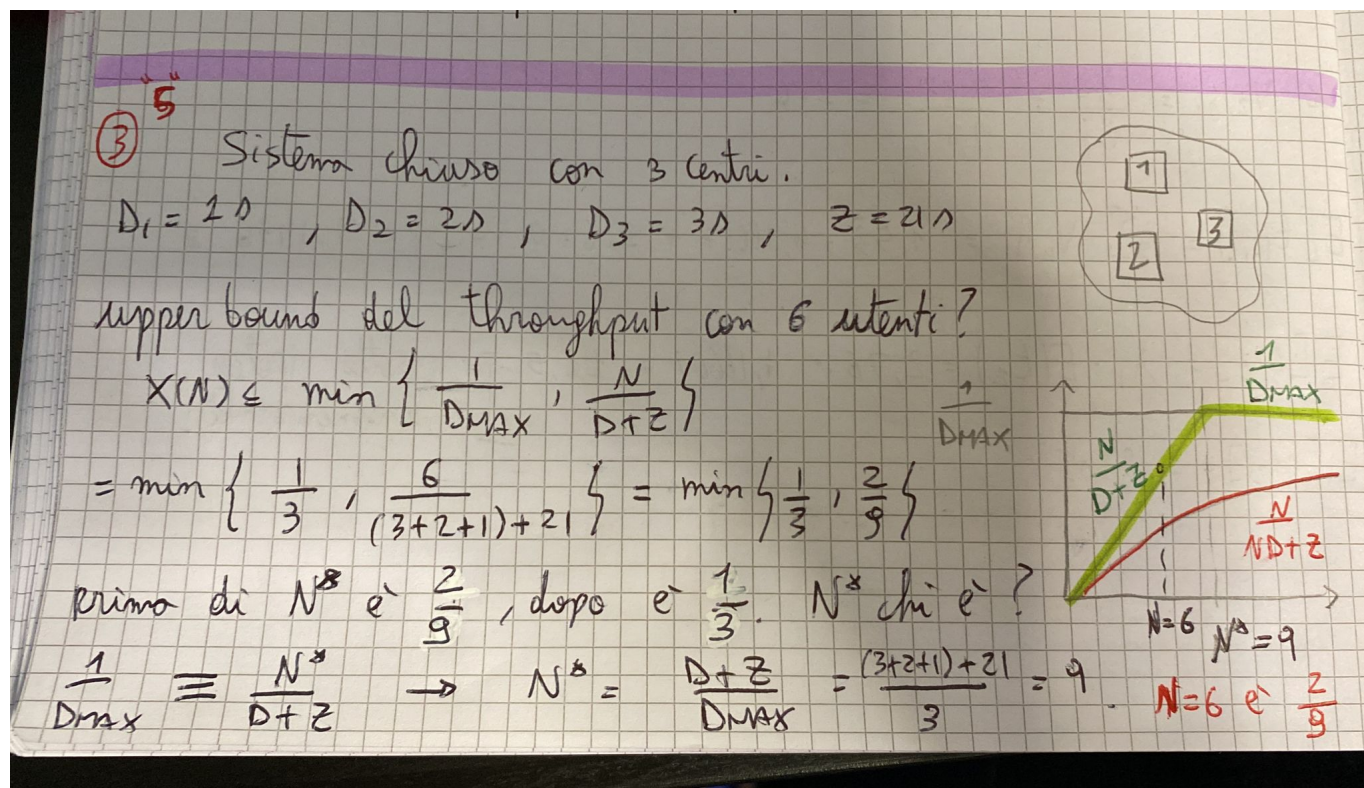 "5"
③ Sistema chiuso con 3 centri.
D₁ = 1s , D₂ = 2s , D₃ = 3s , Z = 21s
1
2
3
upper bound del throughput con 6 utenti?
X(N) ≤ min { 1/DMAX , N/(D+Z) }
= min { 1/3 , 6/((3+2+1)+21) } = min { 1/3 , 2/9 }
prima di N* è 2/9 , dopo è 1/3 . N* chi è?
1/DMAX ≡ N*/(D+Z) → N* = (D+Z)/DMAX = ((3+2+1)+21)/3 = 9 .
1/DMAX
1/DMAX
N/(D+Z)
N/(ND+Z)
N=6
N*=9
N=6 è 2/9